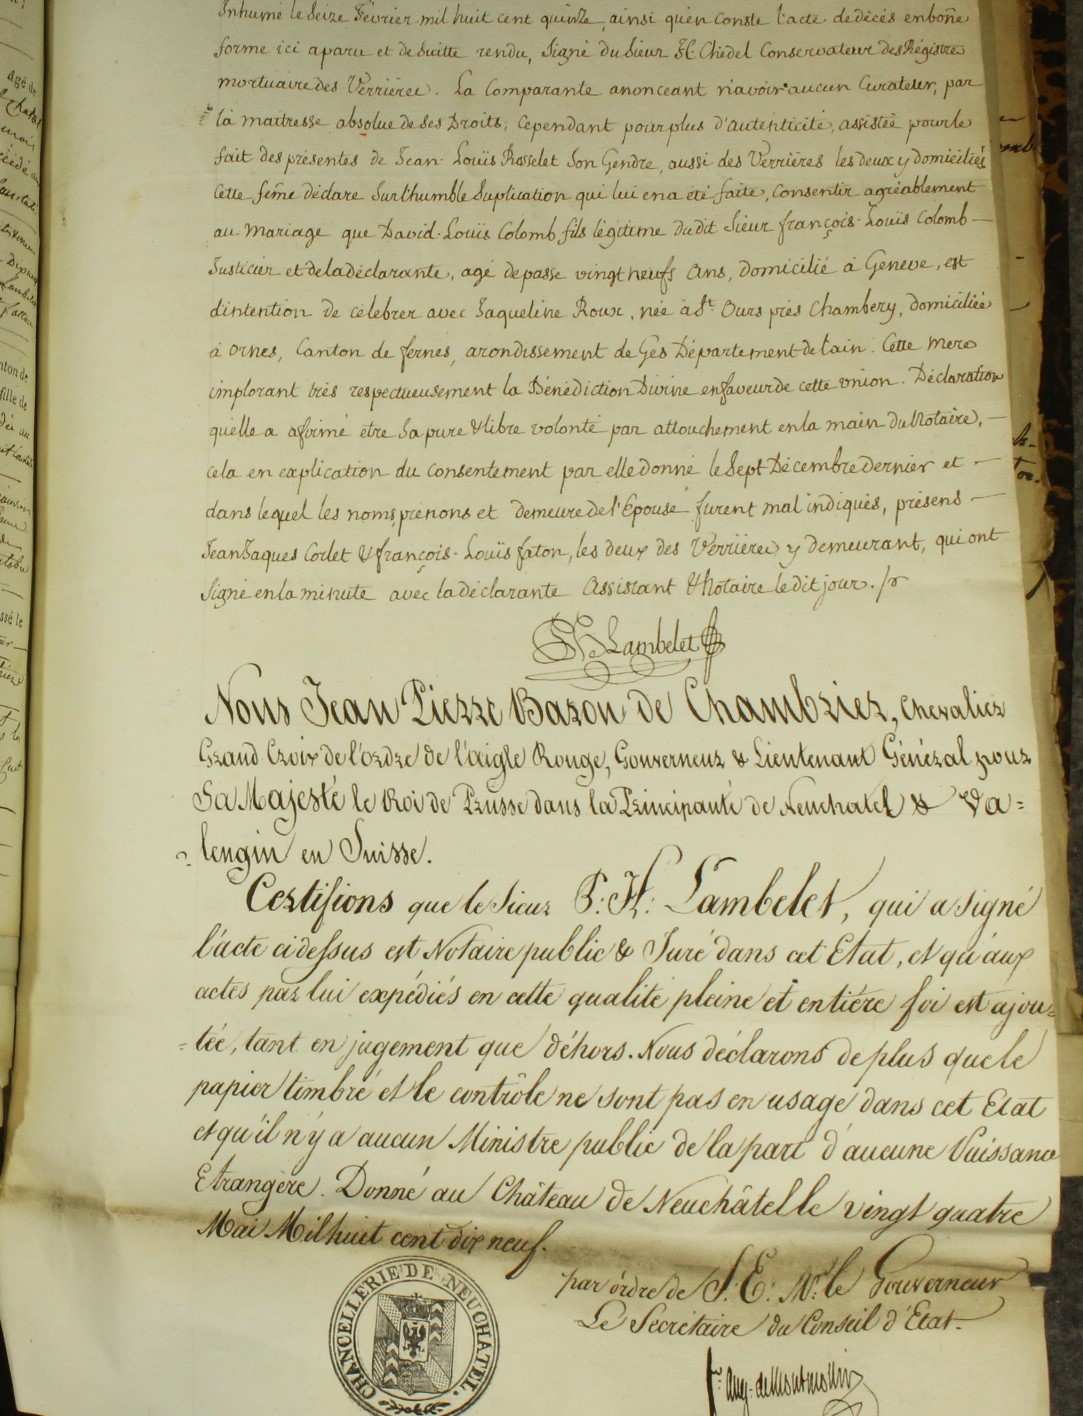 Inhumé le Seize Février mil huit cent quinze, ainsi qu'en Conste l'acte de décés en bone
forme ici aparu et de Suitte rendu, Signé du Sieur Chédel Conservateur des Régistre
mortuaire des Verrières. La Comparante anonceant n'avoir aucun Curateur, par
là maitresse absolue de Ses Droits, Cependant pour plus d'autenticité, assistée pour le
fait des présentes de Jean Louïs Rosselet Son Gendre, aussi des Verrières les deux y domiciliés
Cette feme déclare Sur l'humble Suplication qui lui en a été faite, Consentir agréablement
au Mariage que David-Louïs Colomb, fils légitime du dit Sieur françois-Louïs Colomb —
Justicier et de la déclarante, agé de passé vingt neufs Ans, domicilié à Geneve, est
d'intention de célébrer avec Jaqueline Roux, née à St. Ours près Chambery, domiciliée
à Ornex, Canton de fernex, arondissement de Gex Département de l'ain. Cette Mere
implorant très respectueusement la Bénédiction Divine en faveur de cette union. Déclaration
qu'elle a afirmé etre Sa pure & libre volonté par attouchement en la main du Notaire, —
cela en explication du Consentement par elle donné le Sept Décembre dernier et —
dans lequel les noms, prénons et demeure de l'Epouse furent mal indiqués, présens —
Jean Jaques Corlet & françois-Louïs faton, les deux des Verrières y demeurant, qui ont
Signé en la minute avec la déclarante Assistant & Notaire le dit jour.
Lambelet
Nous Jean Pierre Baron de Chambrier, Chevalier
Grand Croix de l'ordre de l'aigle Rouge, Gouverneur & Lieutenant Général pour
Sa Majesté le Roi de Prusse dans la Principauté de Neuchatel & Va=
lengin en Suisse.
Certifions que le Sieur P: H: Lambelet, qui a signé
l'acte ci dessus est Notaire public & Juré dans cet Etat, et qu'aux
actes par lui expédiés en cette qualite pleine et entière foi est ajou=
=tée, tant en jugement que déhors. Nous déclarons de plus que le
papier timbré et le contrôle ne sont pas en usage dans cet Etat
et qu'il n'y a aucun Ministre public de la part d'aucune Puissance
Etrangère. Donné au Château de Neuchâtel le vingt quatre
Mai Mil huit cent dix neuf.
par órdre de S: E: Mr. le Gouverneur
Le Secrétaire du Conseil d'Etat.
CHANCELLERIE DE NEUCHATEL.
Aug. de Montmollin